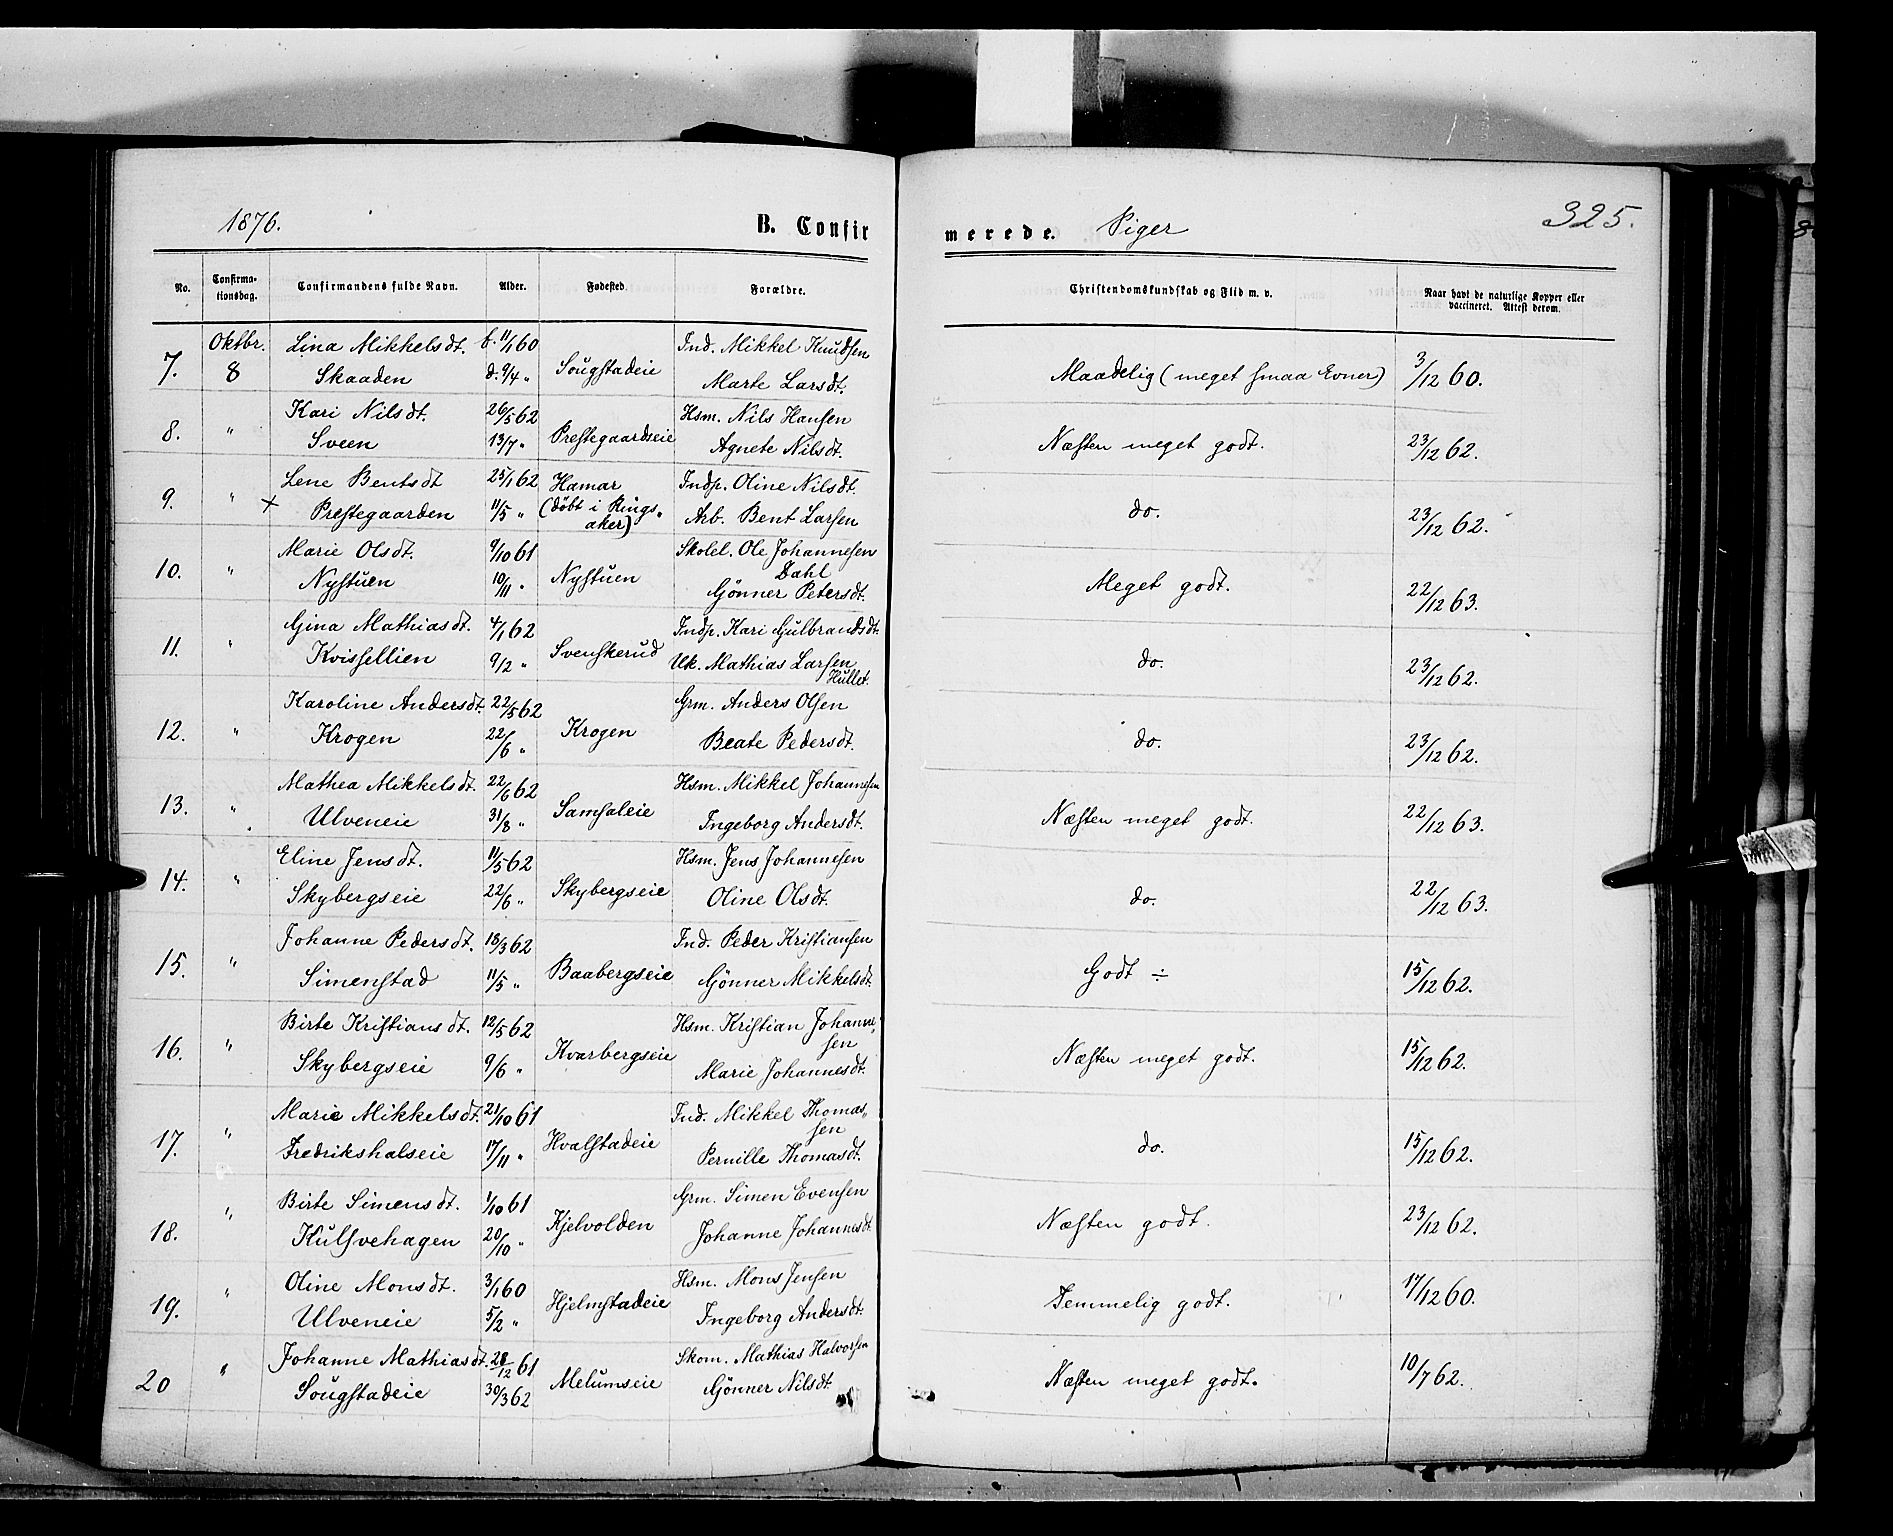 1876.
B. Confirmerede. Piger
325.
No. Confirmationsdag. Confirmandens fulde Navn. Alder. Fødested. Forældre. Christendomskundskab og Flid m. v. Naar havt de naturlige Kopper eller vaccineret. Attest derom.
Oktbr. Lina Mikkelsdt. f. 11/1 60 Ind. Mikkel Knudsen
7. 8 Skaaden d. 9/4 " Sougstadeie Marte Larsdt. Maadelig (meget smaa Evner) 3/12 60.
Kari Nilsdt. 26/5 62 Hsm. Nils Hansen
8. " Sveen 13/7 " Prestegaardseie Agnete Nilsdt. Næsten meget godt. 23/12 62.
Lene Bentsdt 25/1 62 Hamar Indp. Oline Nilsdt.
9. " + Prestegaarden 11/5 " (döbt i Rings-aker) Arb. Bent Larsen do. 23/12 62.
Marie Olsdt. 9/10 61 Skolel. Ole Johannesen
Dahl
10. " Nystuen 10/11 " Nystuen Gönner Petersdt. Meget godt. 22/12 63.
Gina Mathiasdt. 4/1 62 Indp. Kari Gulbrandsdt.
11. " Kvissellien 9/2 " Svenskerud Uk. Mathias Larsen do. 23/12 62.
Hullet.
Karoline Andersdt. 22/5 62 Grm. Anders Olsen
12. " Krogen 22/6 " Krogen Beate Pedersdt. do. 23/12 62.
Mathea Mikkelsdt. 22/6 62 Hsm. Mikkel Johannesen
13. " Ulveneie 31/8 " Samsaleie Ingeborg Andersdt. Næsten meget godt. 22/12 63.
Eline Jensdt. 11/5 62 Hsm. Jens Johannesen
14. " Skybergseie 22/6 " Skybergseie Oline Olsdt. do. 22/12 63.
Johanne Pedersdt. 18/3 62 Ind. Peder Kristiansen
15. " Simenstad 11/5 " Baabergseie Gönner Mikkelsdt. Godt ÷ 15/12 62.
Birte Kristiansdt. 12/5 62 Hsm. Kristian Johanne-
sen
16. " Skybergseie 9/6 " Kvarbergseie Marie Johannesdt. Næsten meget godt. 15/12 62.
Marie Mikkelsdt. 21/10 61 Ind. Mikkel Thomas-
sen
17. " Fredrikshalseie 17/11 " Hvalstadeie Pernille Thomasdt. do. 15/12 62.
Birte Simensdt. 1/10 61 Grm. Simen Evensen
18. " Kulsvehagen 20/10 " Kjelvolden Johanne Johannesdt. Næsten godt. 23/12 62.
Oline Monsdt. 3/1 60 Hsm. Mons Jensen
19. " Ulveneie 5/2 " Hjelmstadeie Ingeborg Andersdt. Temmelig godt. 17/12 60.
Johanne Mathiasdt. 28/12 61 Skom. Mathias Halvorsen
20 " Sougstadeie 30/3 62 Melumseie Gönner Nilsdt. Næsten meget godt. 10/7 62.